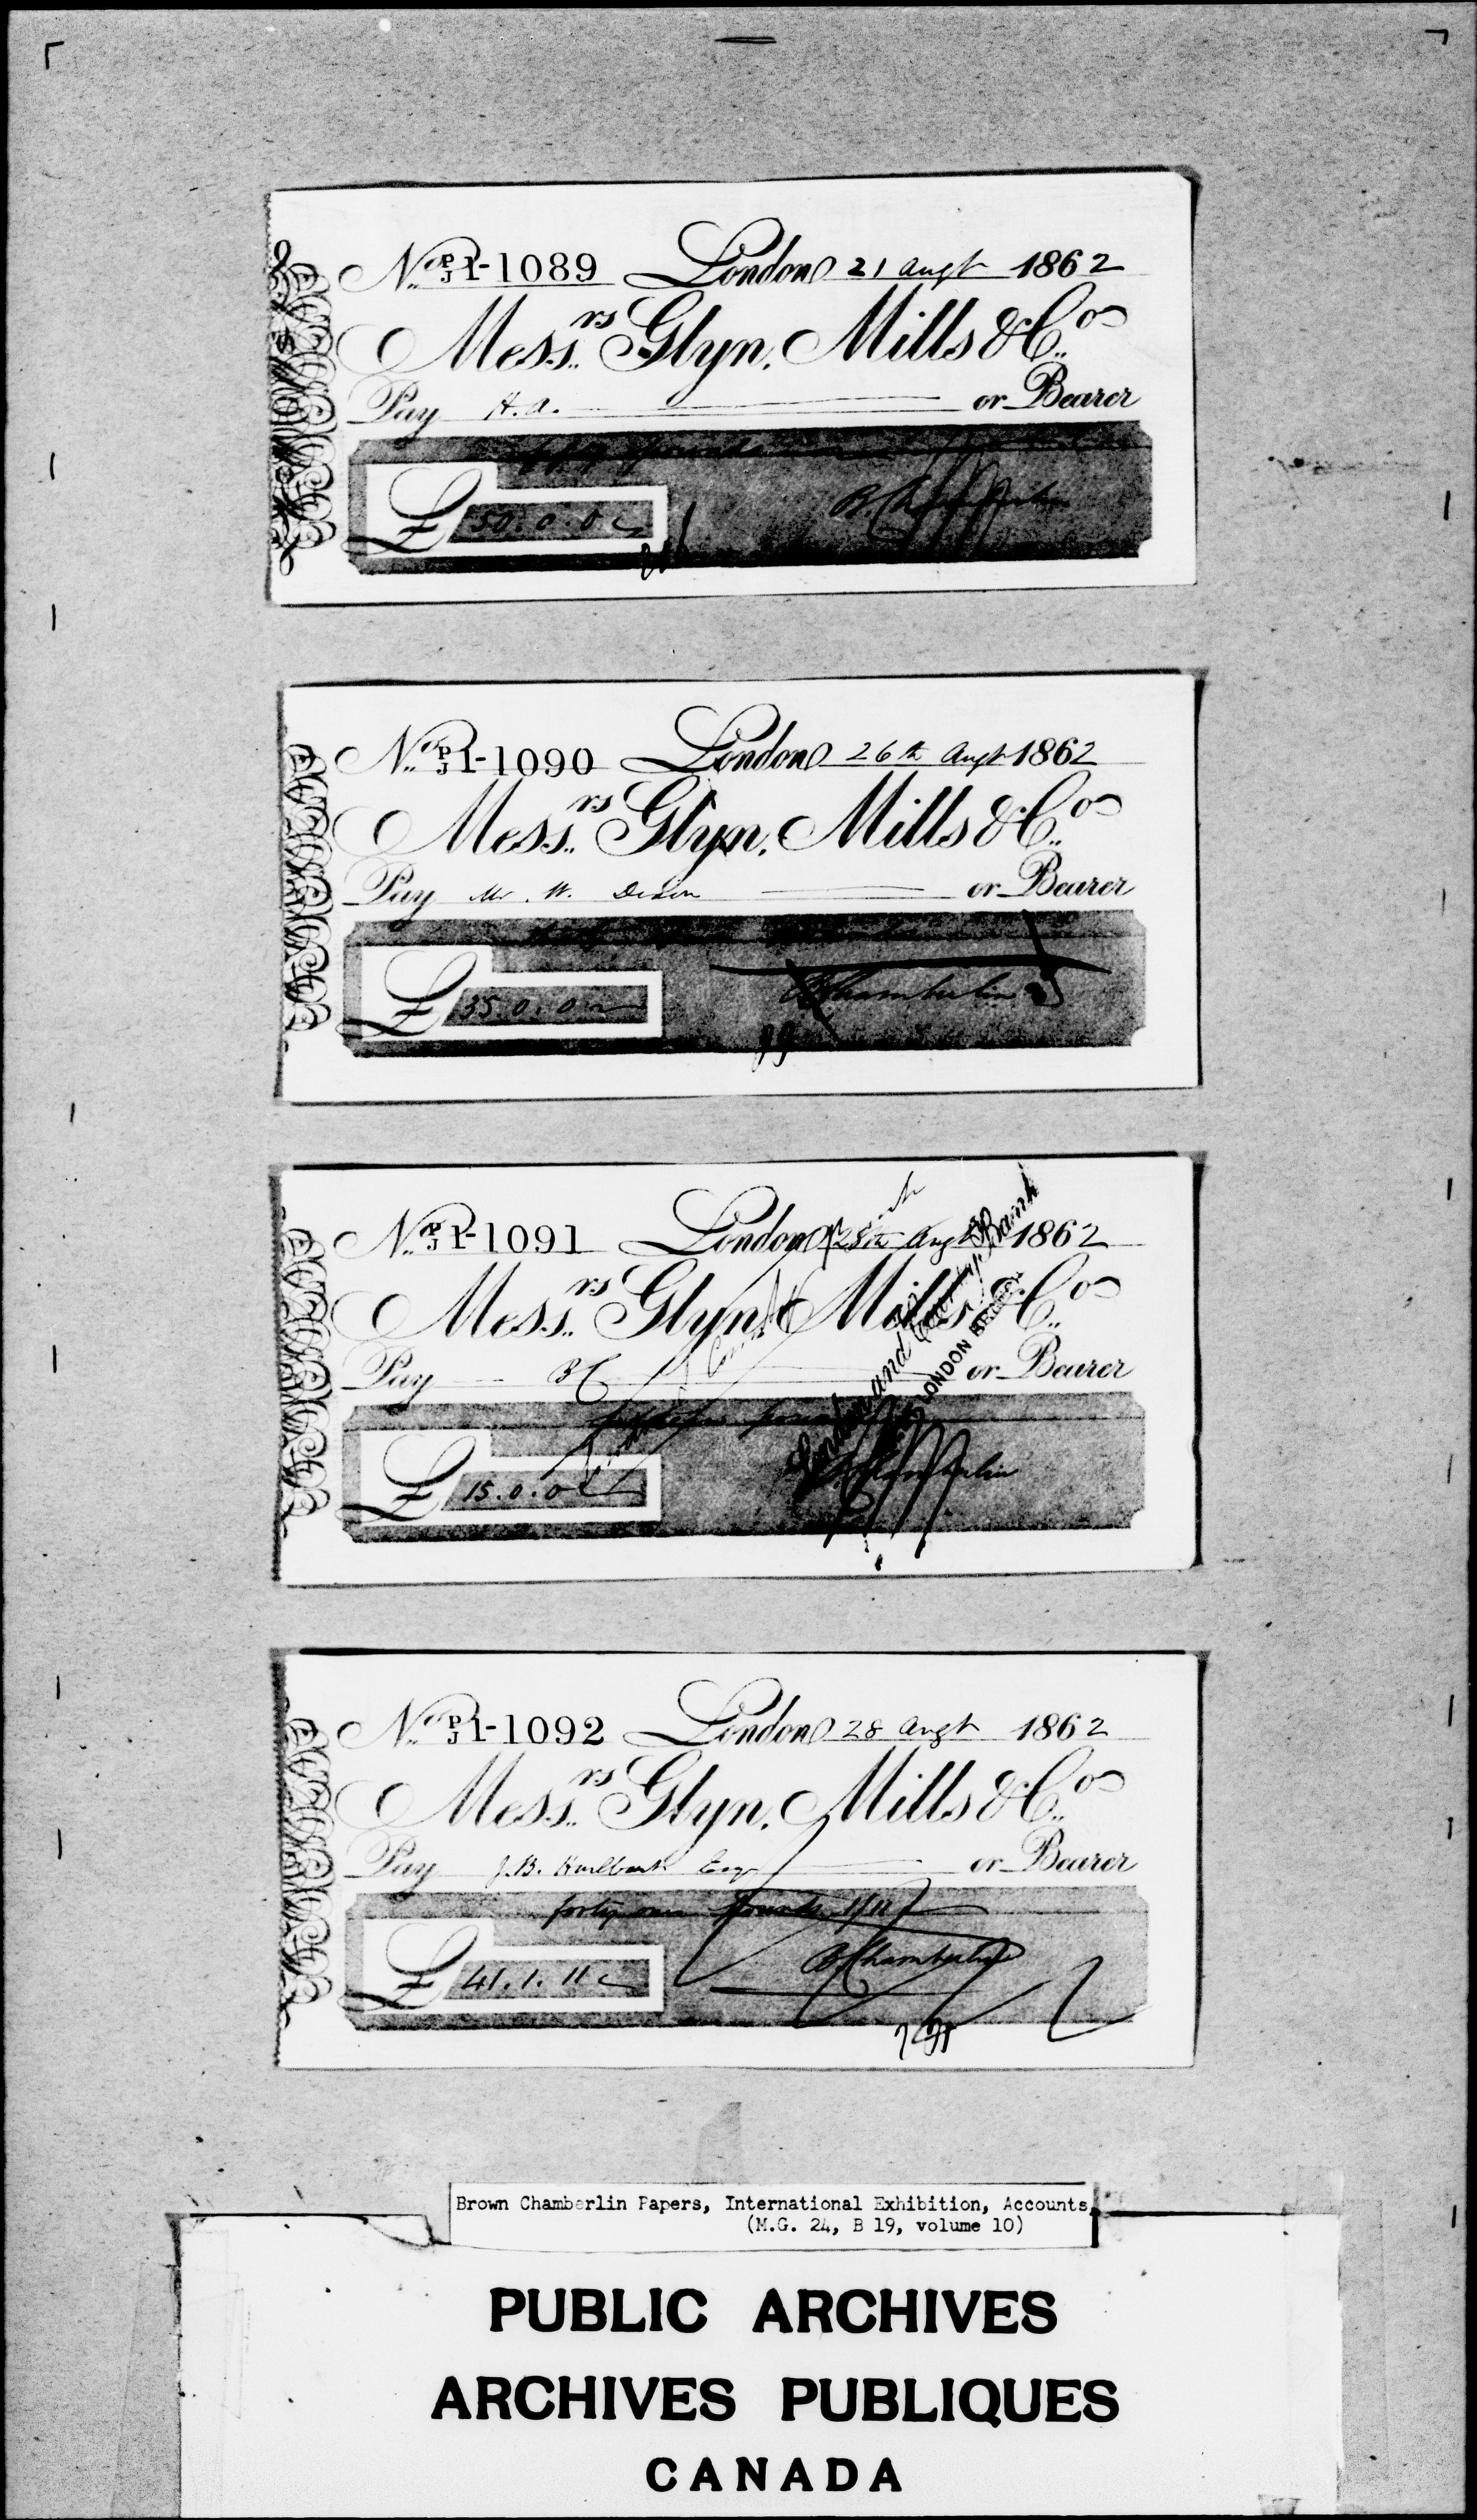 No. P/J 1-1089 London 21 Augt 1862
Messrs. Glyn, Mills & Co.
Pay H.A. or Bearer
fifty pounds
£ 50.0.0
B. Chamberlin
No. P/J 1-1090 London 26th Augt 1862
Messrs. Glyn, Mills & Co.
Pay Mr. W. Dixon or Bearer
£ 35.0.0
B Chamberlin
No. P/J 1-1091 London 28th Augt 1862
Messrs. Glyn, Mills & Co.
Pay BC or Bearer
fifteen pounds
£ 15.0.0
B Chamberlin
London and County Bank
LONDON
No. P/J 1-1092 London 28 Augt 1862
Messrs. Glyn, Mills & Co.
Pay J.B. Hurlburt Esq or Bearer
forty one pounds 1/11
£ 41.1.11
B Chamberlin
Brown Chamberlin Papers, International Exhibition, Accounts,
(M.G. 24, B 19, volume 10)
PUBLIC ARCHIVES
ARCHIVES PUBLIQUES
CANADA